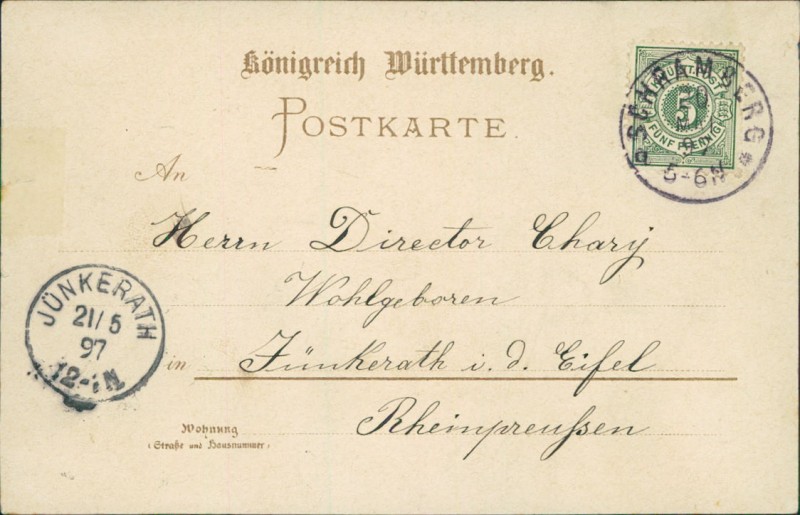 Königreich Württemberg.
POSTKARTE.
SCHRAMBERG
5-6N
K. WÜRTT. POST
5
FÜNF PFENNIG
An
Herrn Director Chary
Wohlgeboren
in Jünkerath i. d. Eifel
Rheinpreußen
Wohnung
(Straße und Hausnummer)
JÜNKERATH
21/5
97
12-1N